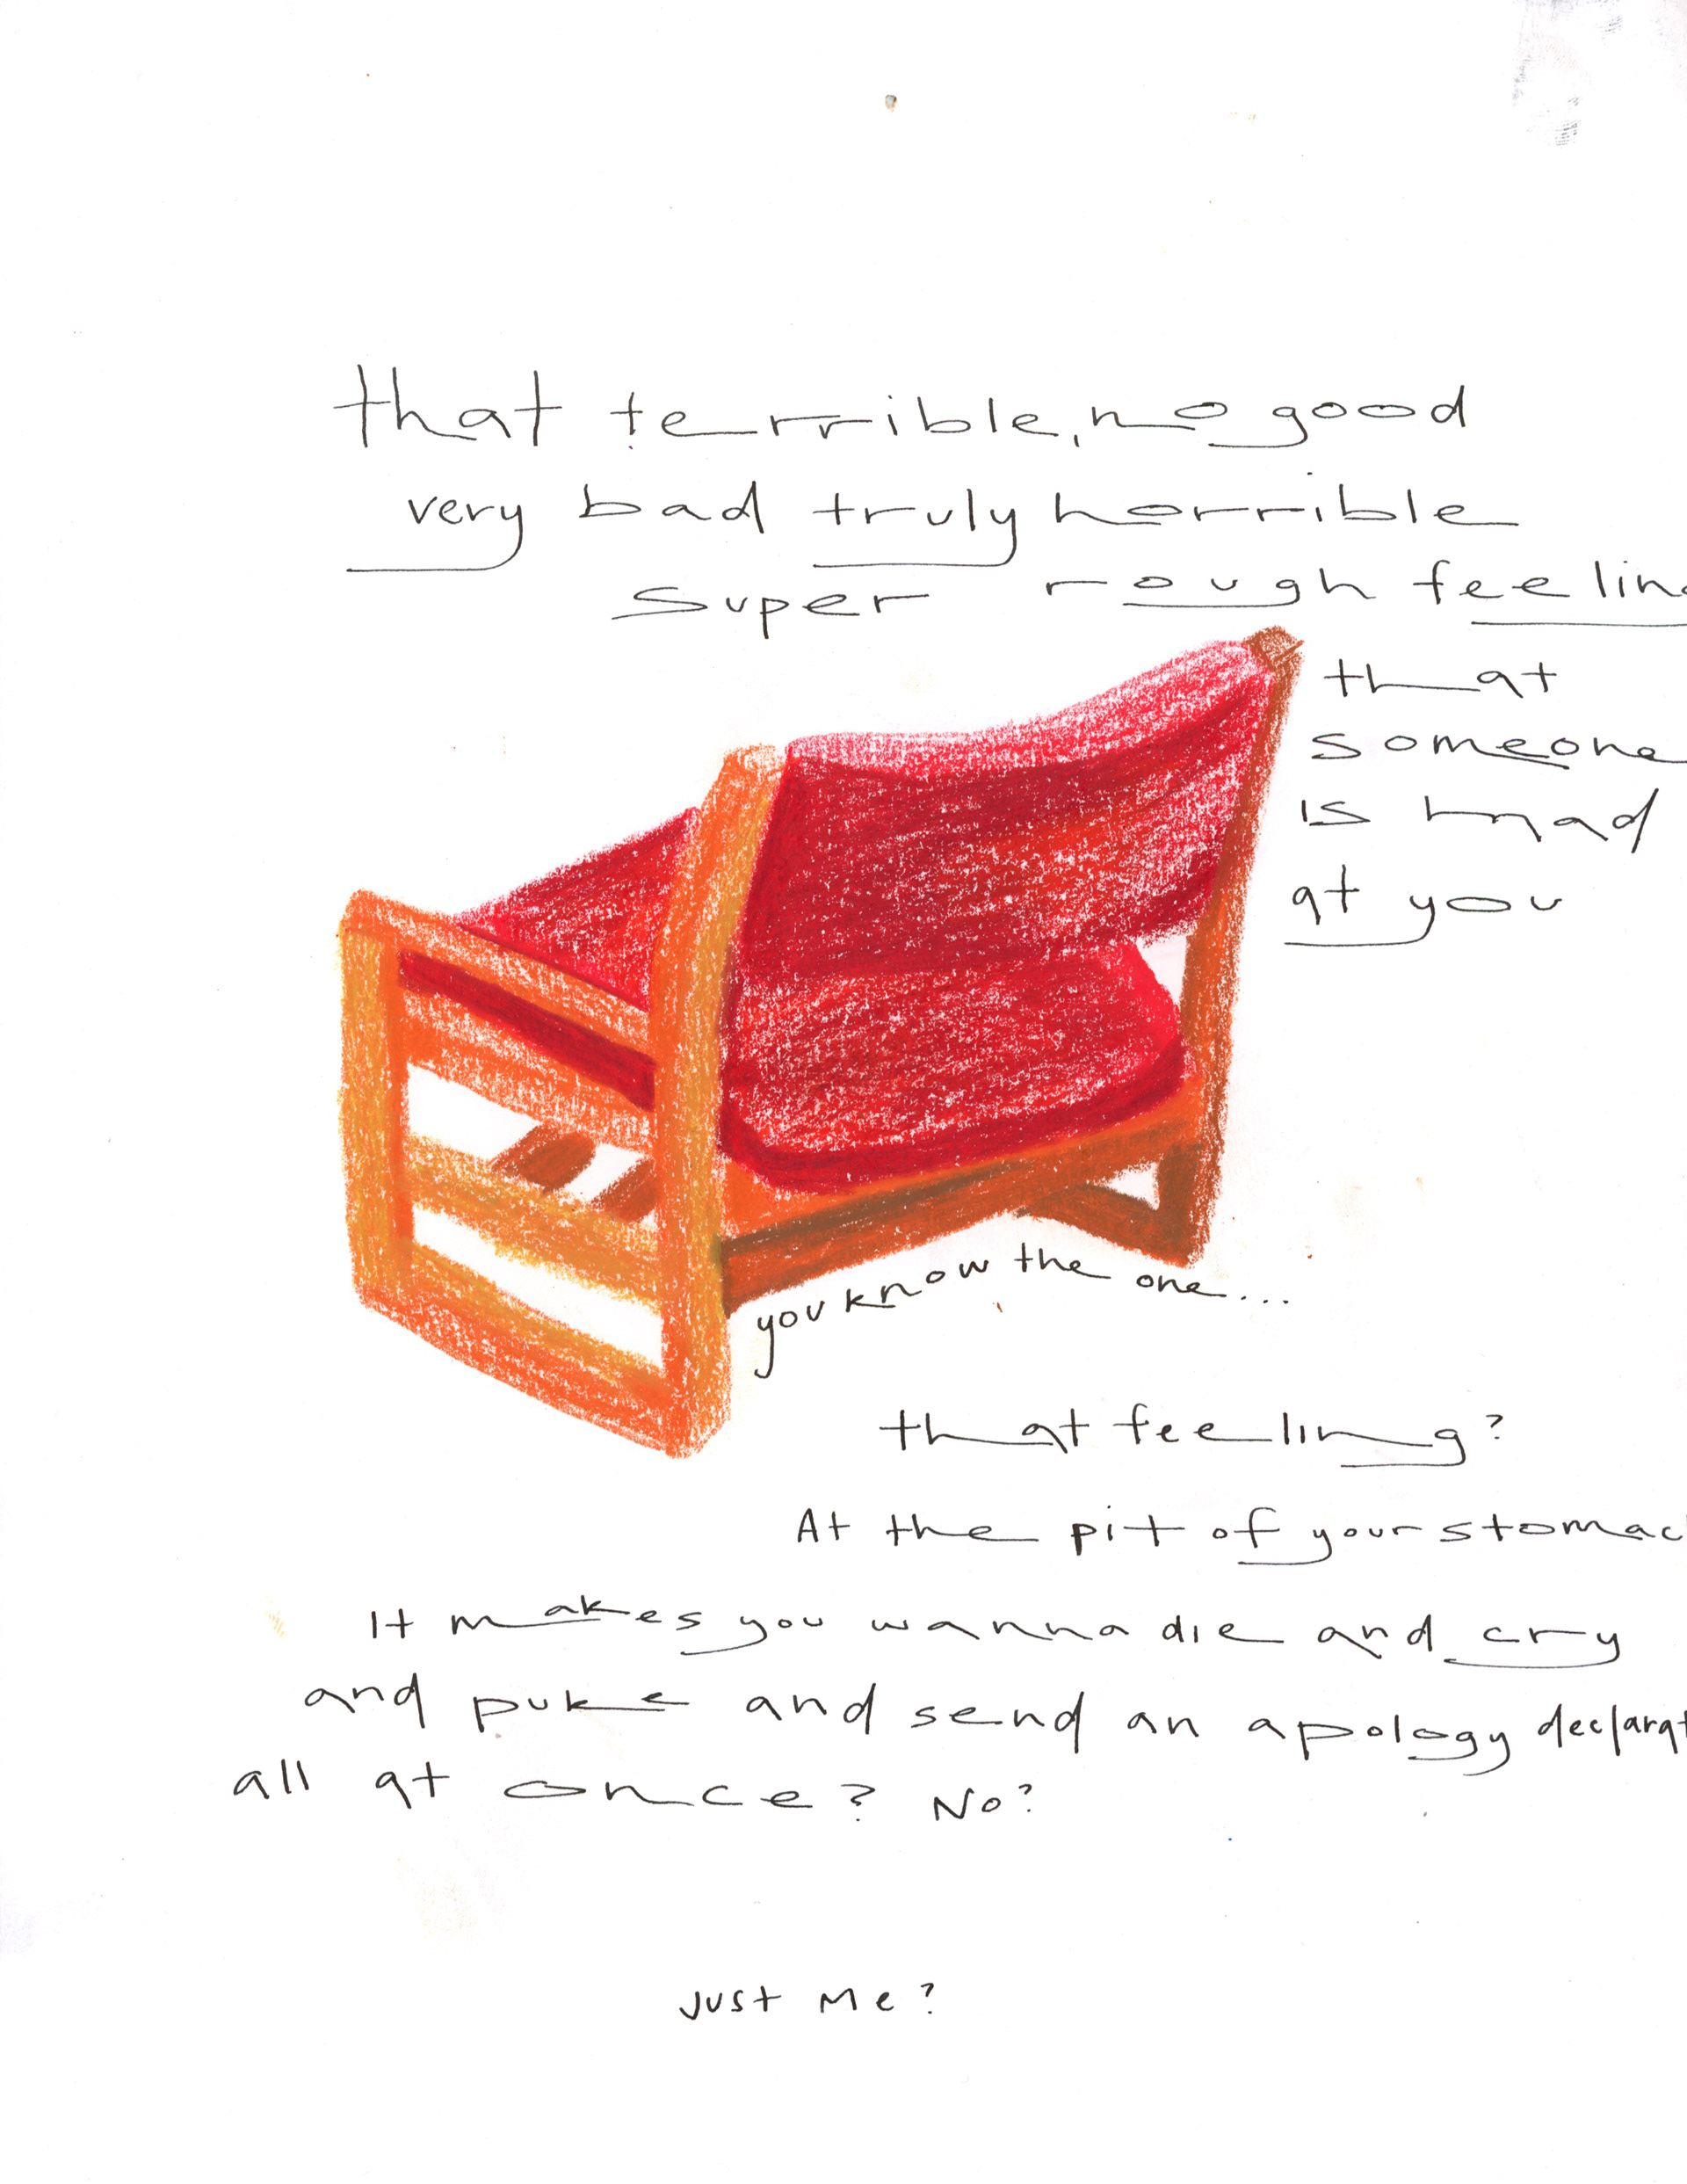 that terrible, no good
very bad truly horrible
super rough feelin
that
someone
is mad
at you
you know the one...
that feeling?
At the pit of your stomac
It makes you wanna die and cry
and puke and send an apology declarat
all at once? No?
Just me?